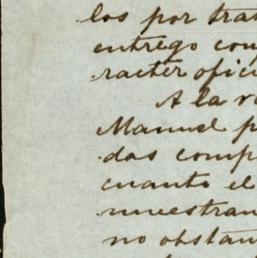 los por tra
entrego con
racter ofici
A la v
Manuel p
das comp
cuanto el
muestran
no obstan